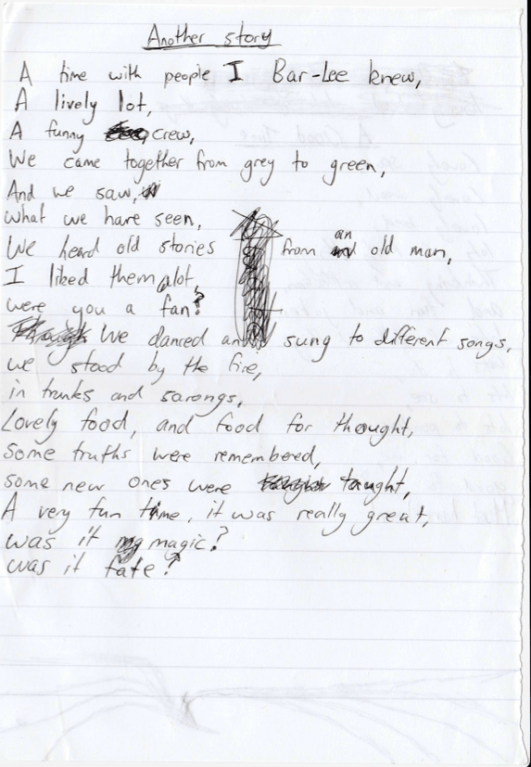 Another story
A time with people I Bar-Lee knew,
A lively lot,
A funny crew,
We came together from grey to green,
And we saw,
what we have seen,
We heard old stories from an old man,
I liked them alot,
were you a fan?
We danced and sung to different songs,
we stood by the fire,
in trunks and sarongs,
Lovely food, and food for thought,
some truths were remembered,
some new ones were taught,
A very fun time, it was really great,
was it magic?
was it fate?